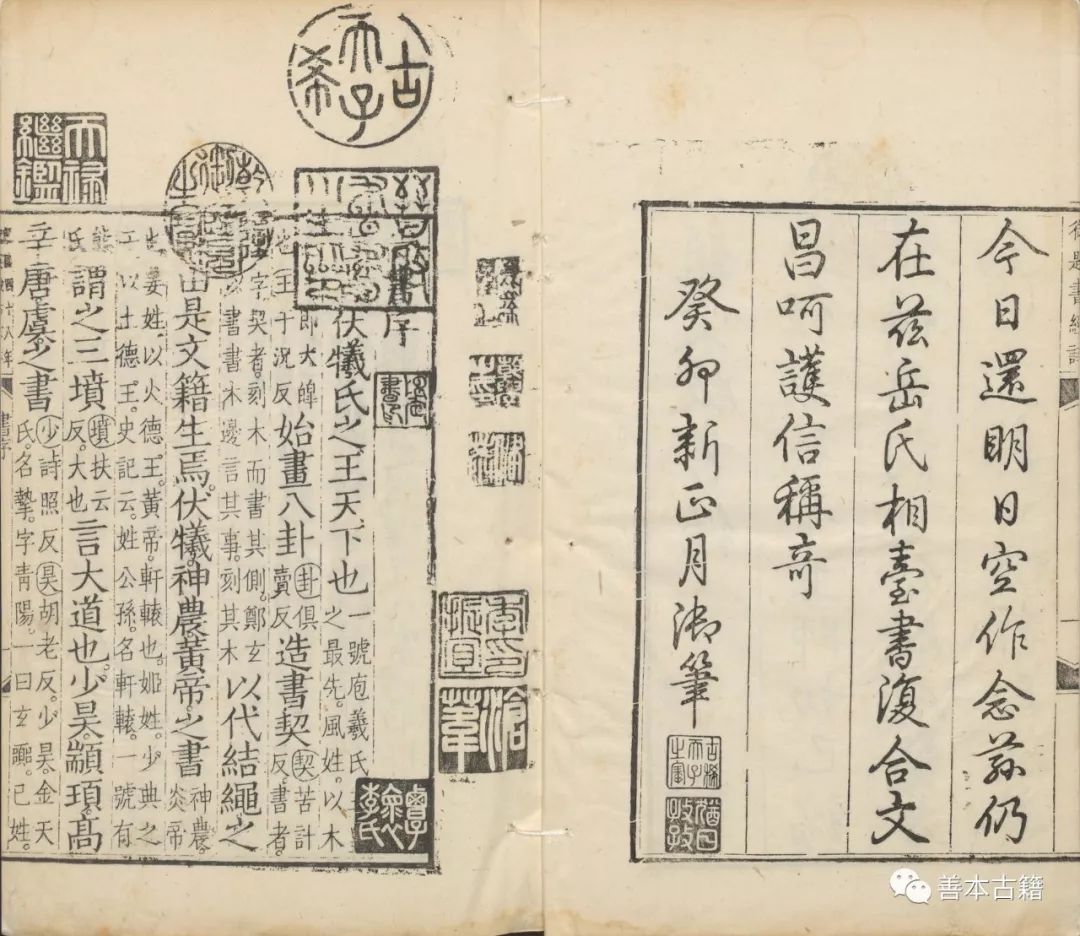 今日還明日空作念茲仍
在茲岳氏相臺書復合文
昌呵護信稱奇
癸卯新正月御筆
古稀天子之寶
猶日孜孜
古稀天子
天祿繼鑑
乾隆御覽之寶
季振宜印
滄葦
書序
伏犧氏之王天下也一號庖羲氏之最先。風姓。以木
即大皥也王于況反始畫八卦卦俱賣反造書契契苦計反。書者
字契者。刻木而書其側。鄭玄書書木邊言其事。刻其木以代結繩之
由是文籍生焉。伏犧。神農。黃帝之書神農。炎帝
也姜姓。以火德王。黃帝。軒轅也。姬姓。少典之子以土德王。史記云。姓公孫。名軒轅。一號有
熊氏謂之三墳墳扶云反。大也言大道也。少昊。顓頊。高
辛。唐虞之書少詩照反昊胡老反。少昊。金天氏。名摯。字青陽。一曰玄囂。己姓。
書序
善本古籍